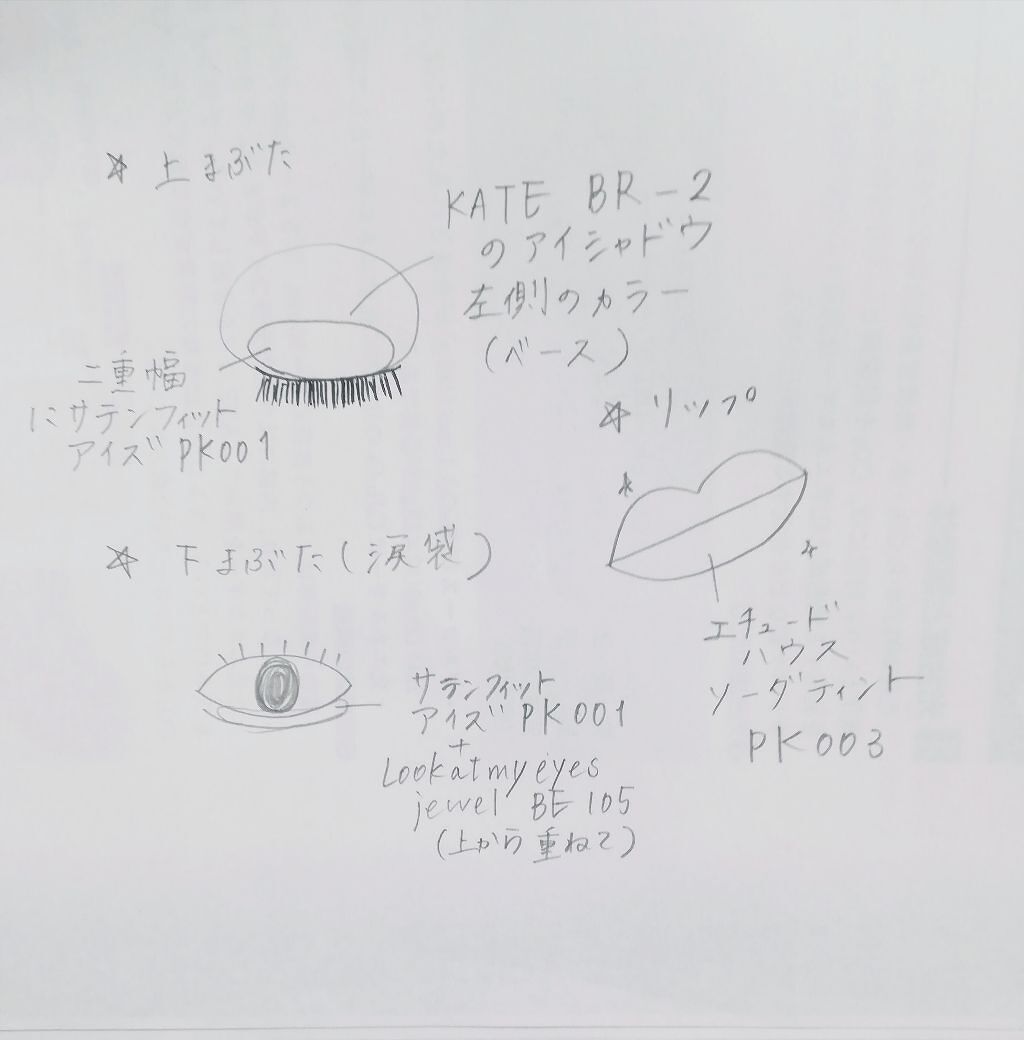 ☆ 上まぶた
KATE BR-2
のアイシャドウ
左側のカラー
(ベース)
二重幅
にサテンフィット
アイズ PK001
☆ リップ
エチュード
ハウス
ソーダティント
PK003
☆ 下まぶた(涙袋)
サテンフィット
アイズ PK001
+
Lookatmyeyes
jewel BE105
(上から重ねて)